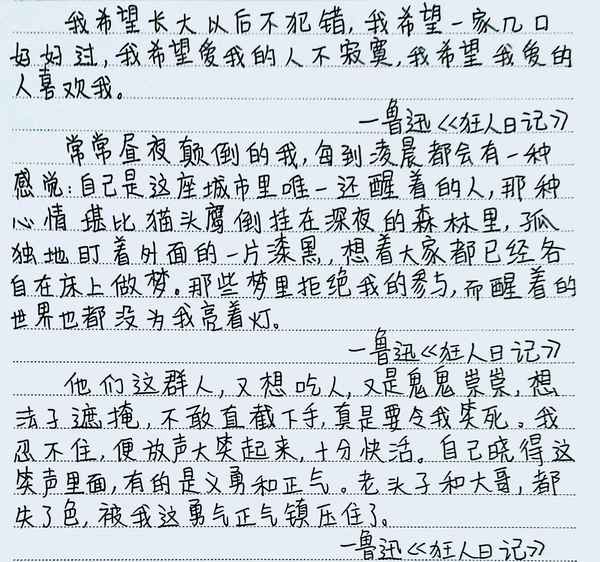 我希望长大以后不犯错,我希望一家几口
好好过,我希望爱我的人不寂寞,我希望我爱的
人喜欢我。
—鲁迅《狂人日记》
常常昼夜颠倒的我,每到凌晨都会有一种
感觉:自己是这座城市里唯一还醒着的人,那种
心情堪比猫头鹰倒挂在深夜的森林里,孤
独地盯着外面的一片漆黑,想着大家都已经各
自在床上做梦。那些梦里拒绝我的参与,而醒着的
世界也都没为我亮着灯。
—鲁迅《狂人日记》
他们这群人,又想吃人,又是鬼鬼祟祟,想
法子遮掩,不敢直截下手,真是要令我笑死。我
忍不住,便放声大笑起来,十分快活。自己晓得这
笑声里面,有的是义勇和正气。老头子和大哥,都
失了色,被我这勇气正气镇压住了。
—鲁迅《狂人日记》